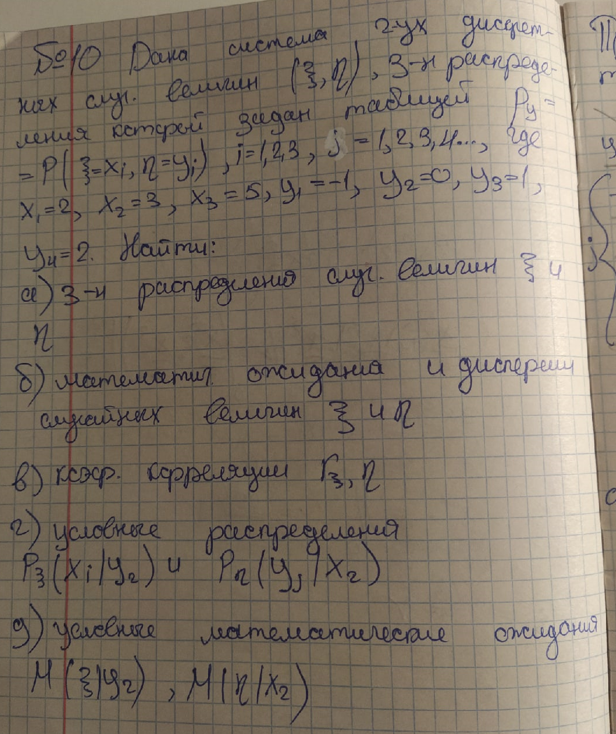 №10 Дана система 2-ух дискрет-
ных случ. величин (ξ, η), З-н распреде-
ления которой задан таблицей Pij =
= P(ξ=xi, η=yj), i=1,2,3, j=1,2,3,4..., где
x₁=2, x₂=3, x₃=5, y₁=-1, y₂=0, y₃=1,
y₄=2. Найти:
а) З-н распределения случ. величин ξ и
η
б) математич. ожидания и дисперсии
случайных величин ξ и η
в) коэф. корреляции rξ,η
г) условные распределения
Pξ(xi/y₂) и Pη(yj/x₂)
д) условные математические ожидания
M(ξ/y₂), M(η/x₂)